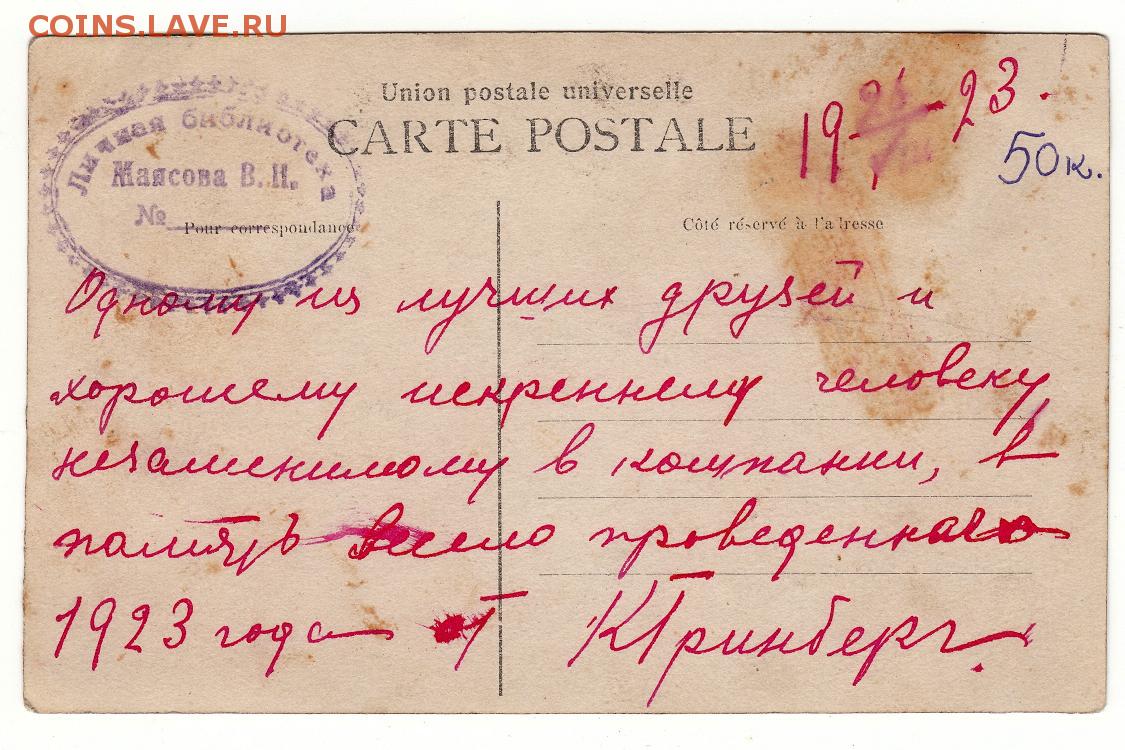 COINS.LAVE.RU
Union postale universelle
CARTE POSTALE
19 26/VIII 23.
50к.
Личная библиотека
Маясова В.Н.
№
Pour correspondance
Côté réservé à l'adresse
Одному из лучших друзей и
хорошему искреннему человеку
незаменимому в компании, в
память весело проведенного
1923 года Т КГринберг.